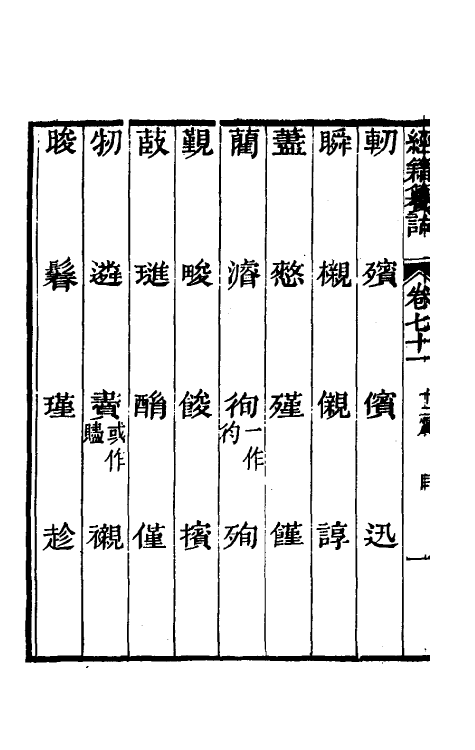 經籍籑詁 卷七十一 十二震 目 一
軔 殯 儐 迅
瞬 櫬 儭 諄
藎 憖 殣 饉
藺 濬 徇一作袀 殉
覲 畯 餕 擯
菣 璡 酳 僅
牣 遴 賮或作贐 襯
晙 鬊 瑾 趁